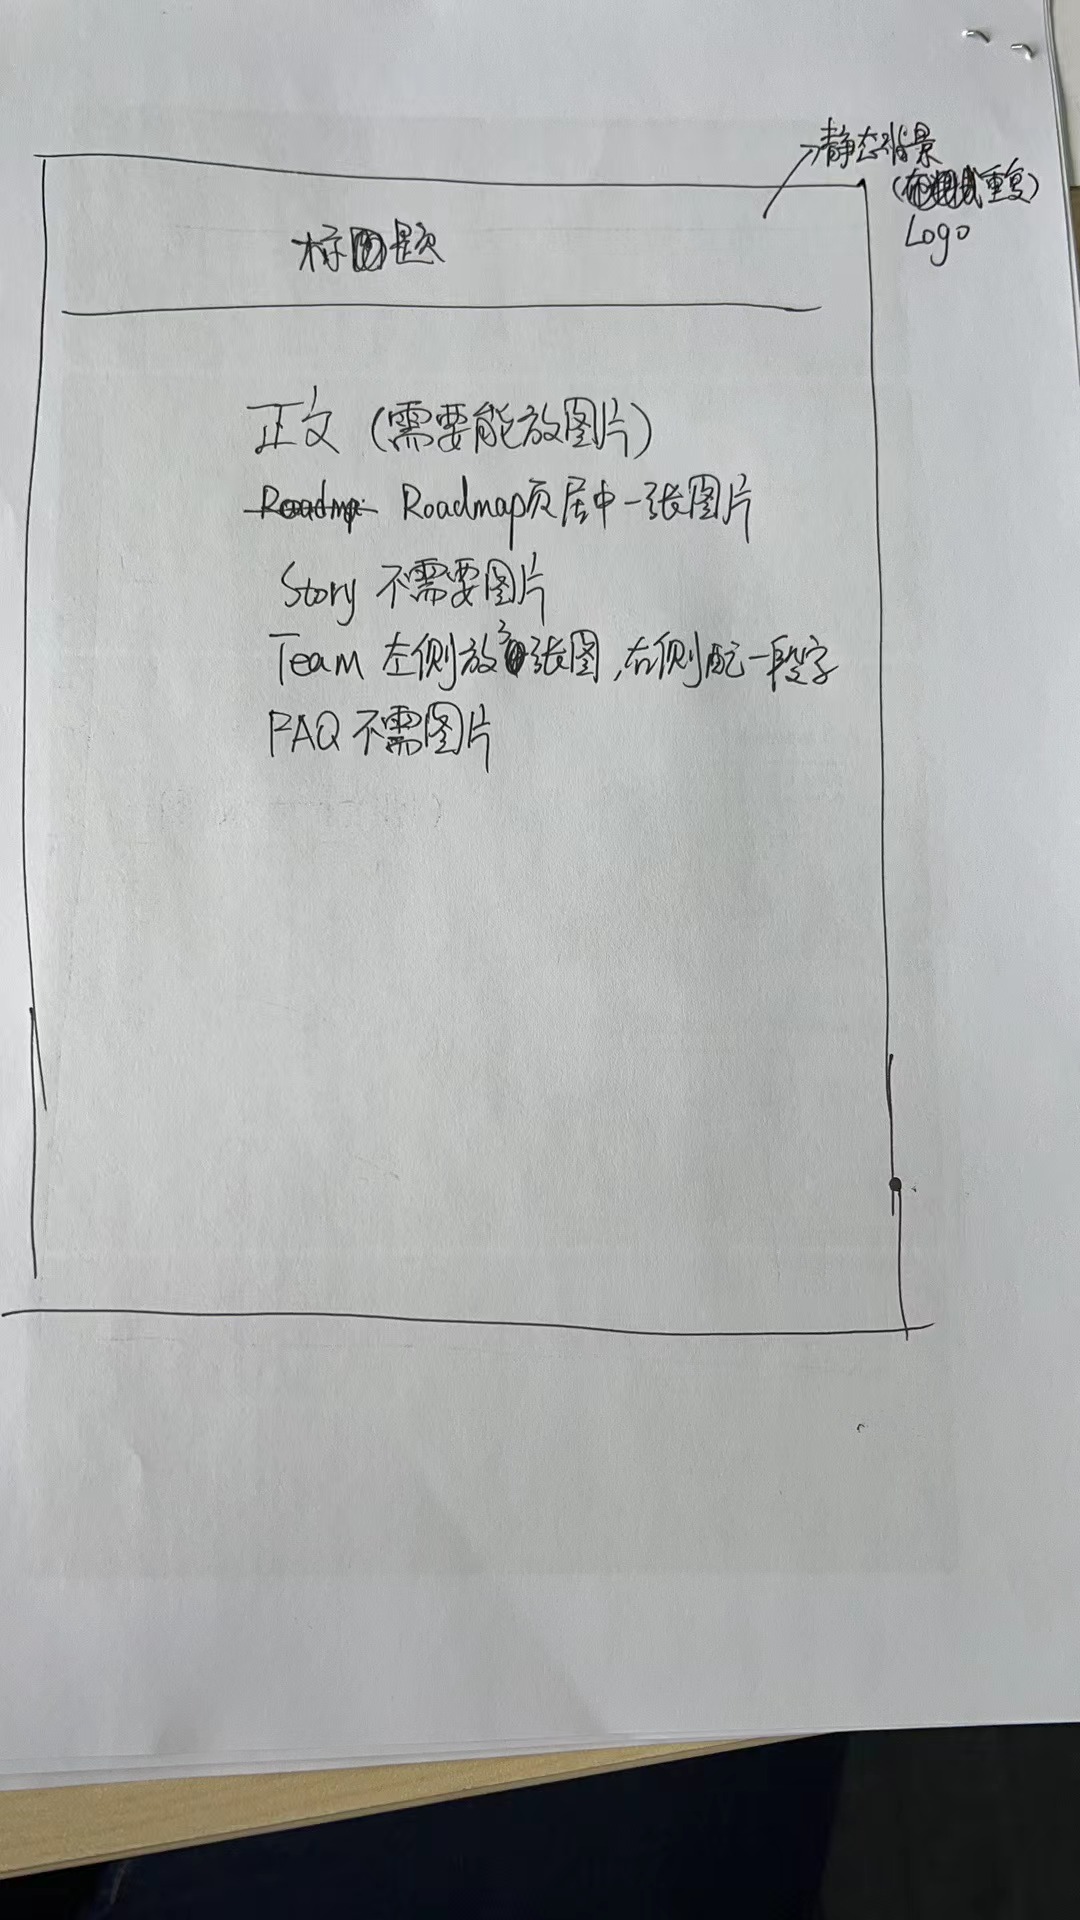 静态背景
(重复)
Logo
标题
正文 (需要能放图片)
Roadmap页居中一张图片
Story 不需要图片
Team 左侧放张图,右侧配一段字
FAQ 不需图片